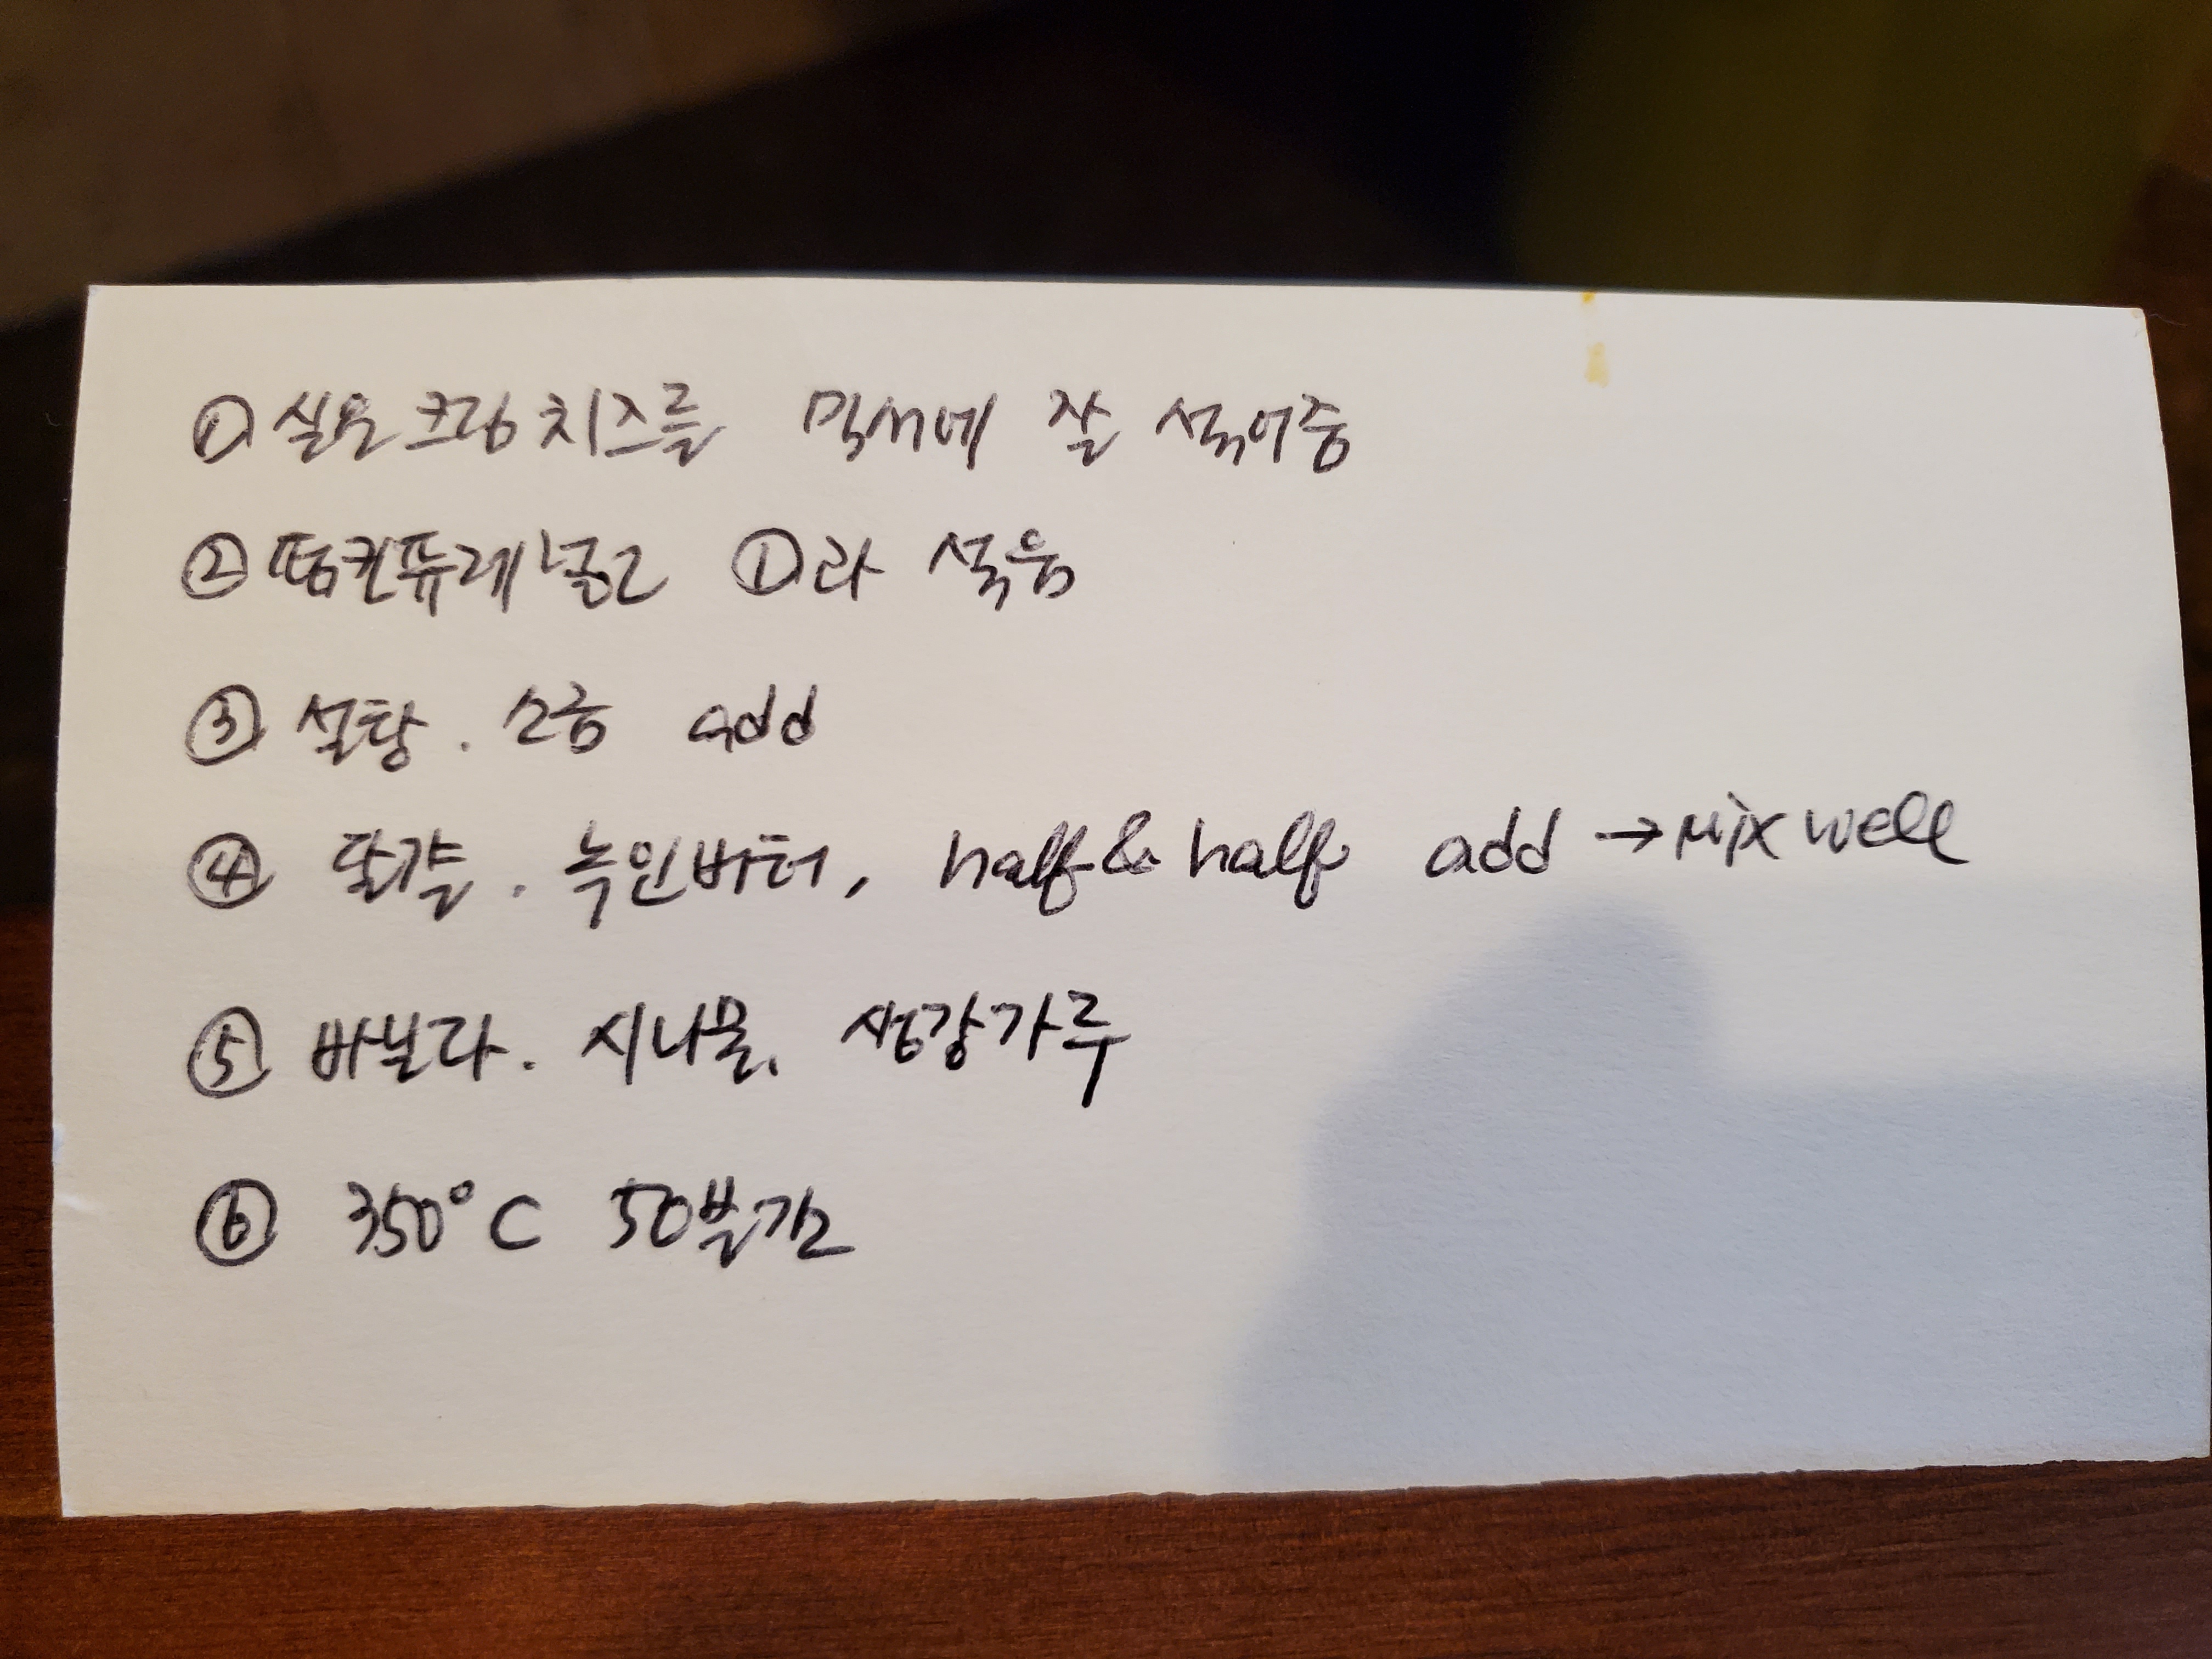 ①실온 크림치즈를 믹서에 잘 섞어줌
② 펌킨퓨레 넣고 ①과 섞음
③ 설탕. 소금 add
④ 달걀. 녹인버터, half & half add → Mix well
⑤ 바닐라. 시나몬. 생강가루
⑥ 350°C 50분간